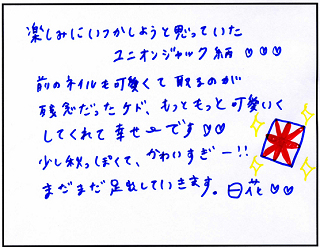 楽しみにいつかしようと思っていた
ユニオンジャック柄 ♡♡♡
前のネイルも可愛くて 取るのが
残念だったケド、もっともっと可愛いく
してくれて幸せーです♡♡
少し秋っぽくて、かわいすぎー!!
まだまだ足出していきます。 日花♡♡